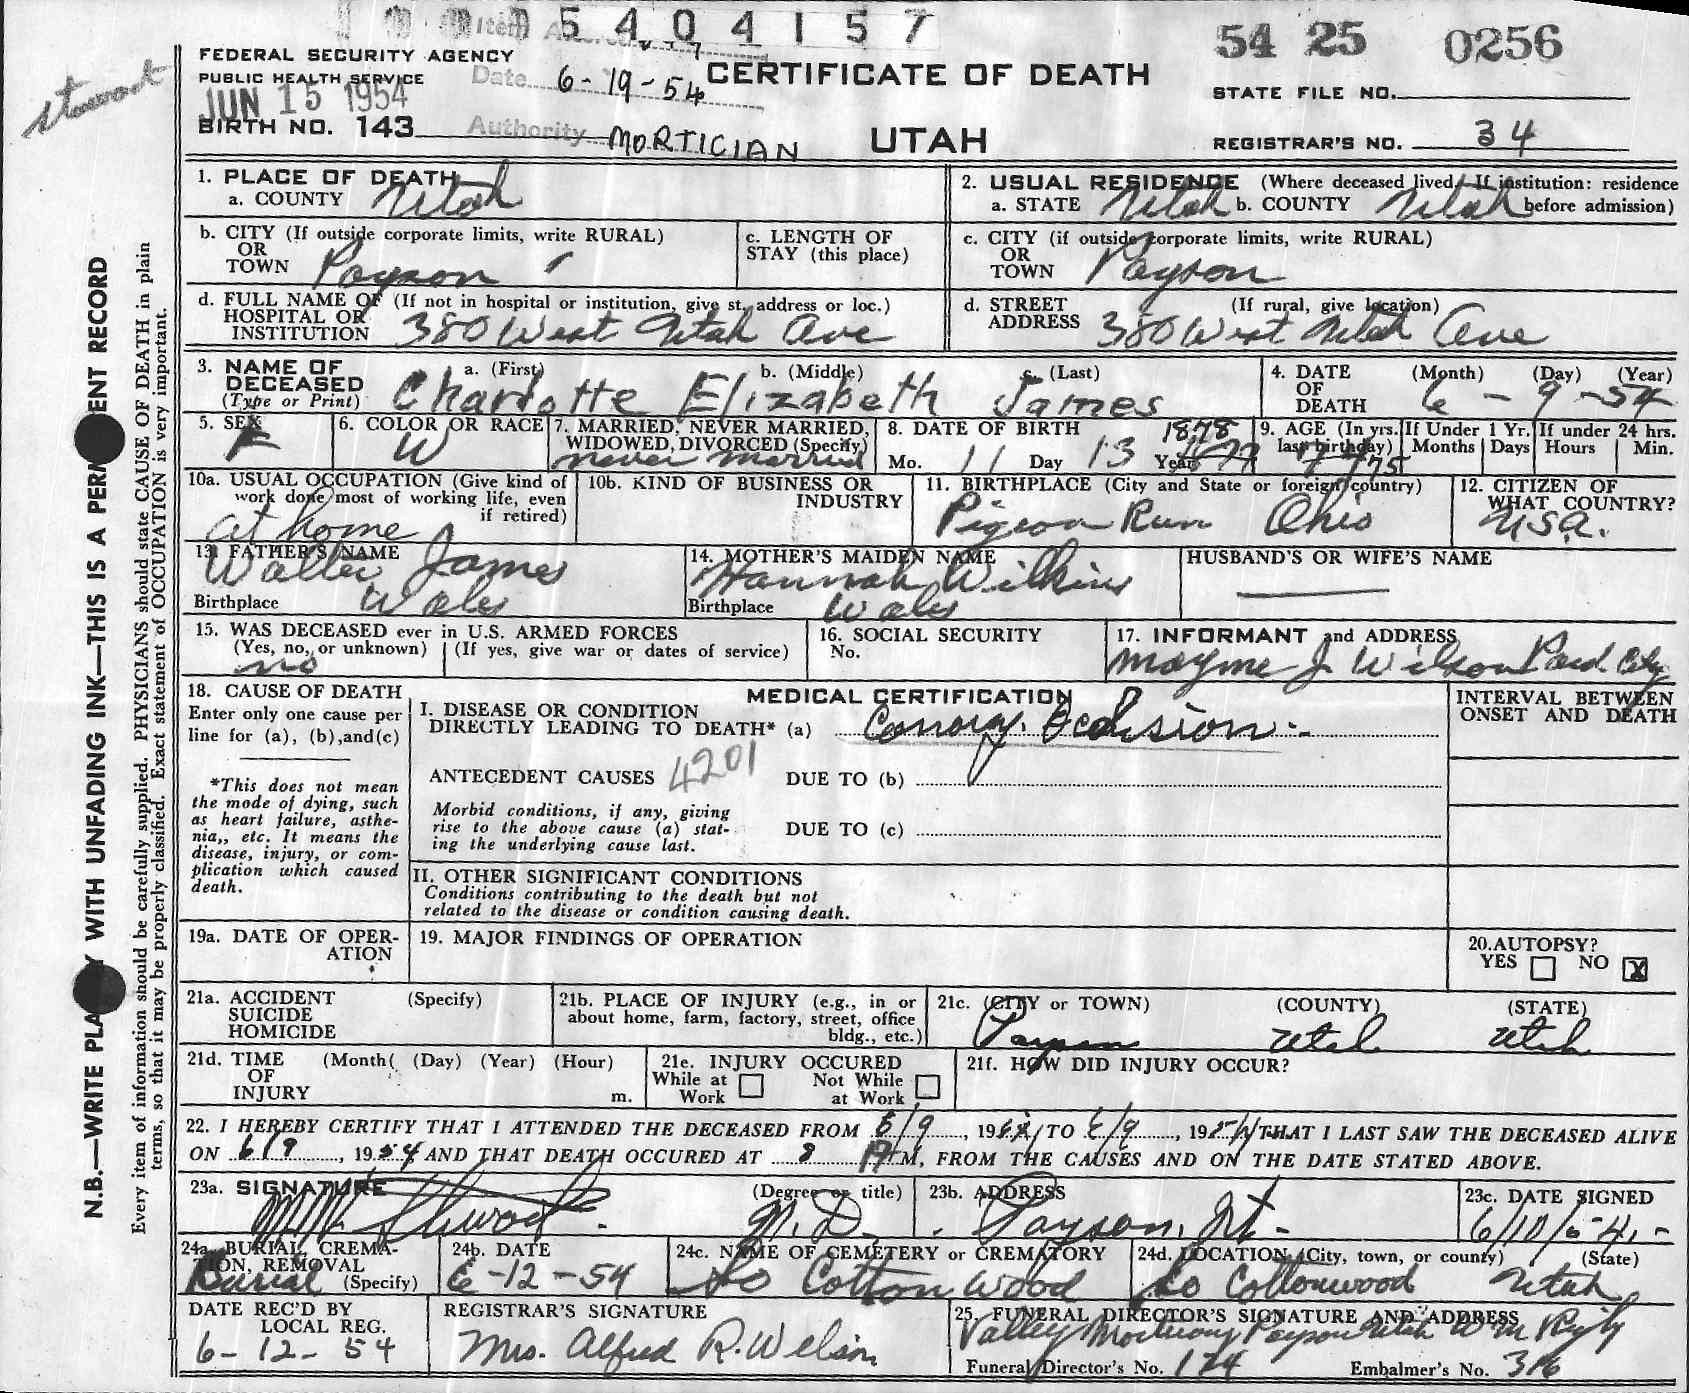 5 4 0 4 1 5 7
54 25 0256
FEDERAL SECURITY AGENCY
PUBLIC HEALTH SERVICE
JUN 15 1954
Date 6-19-54
CERTIFICATE OF DEATH
STATE FILE NO.
BIRTH NO. 143
Authority MORTICIAN
UTAH
REGISTRAR'S NO. 34
1. PLACE OF DEATH
a. COUNTY Utah
2. USUAL RESIDENCE (Where deceased lived. If institution: residence before admission)
a. STATE Utah b. COUNTY Utah
b. CITY (If outside corporate limits, write RURAL)
OR
TOWN Payson
c. LENGTH OF
STAY (this place)
c. CITY (if outside corporate limits, write RURAL)
OR
TOWN Payson
d. FULL NAME OF (If not in hospital or institution, give st. address or loc.)
HOSPITAL OR
INSTITUTION 380 West Utah Ave
d. STREET (If rural, give location)
ADDRESS 380 West Utah Ave
3. NAME OF DECEASED
(Type or Print)
a. (First) b. (Middle) c. (Last)
Charlotte Elizabeth James
4. DATE OF DEATH
(Month) (Day) (Year)
6 - 9 - 54
5. SEX
F
6. COLOR OR RACE
W
7. MARRIED, NEVER MARRIED,
WIDOWED, DIVORCED (Specify)
never married
8. DATE OF BIRTH 1878
Mo. 11 Day 13 Year 1877
9. AGE (In yrs. last birthday) 75
If Under 1 Yr. Months Days
If under 24 hrs. Hours Min.
10a. USUAL OCCUPATION (Give kind of
work done most of working life, even
if retired)
at home
10b. KIND OF BUSINESS OR
INDUSTRY
11. BIRTHPLACE (City and State or foreign country)
Pigeon Run Ohio
12. CITIZEN OF
WHAT COUNTRY?
U.S.A.
13. FATHER'S NAME
Walter James
Birthplace Wales
14. MOTHER'S MAIDEN NAME
Hannah Wilkins
Birthplace Wales
HUSBAND'S OR WIFE'S NAME
15. WAS DECEASED ever in U.S. ARMED FORCES
(Yes, no, or unknown) (If yes, give war or dates of service)
no
16. SOCIAL SECURITY
No.
17. INFORMANT and ADDRESS
Mayme J. Wilson Park City
18. CAUSE OF DEATH
Enter only one cause per
line for (a), (b), and (c)
*This does not mean
the mode of dying, such
as heart failure, asthe-
nia,, etc. It means the
disease, injury, or com-
plication which caused
death.
MEDICAL CERTIFICATION
I. DISEASE OR CONDITION
DIRECTLY LEADING TO DEATH* (a) Conory. Occlusion
ANTECEDENT CAUSES 4201 DUE TO (b)
Morbid conditions, if any, giving
rise to the above cause (a) stat-
ing the underlying cause last.
DUE TO (c)
II. OTHER SIGNIFICANT CONDITIONS
Conditions contributing to the death but not
related to the disease or condition causing death.
INTERVAL BETWEEN
ONSET AND DEATH
19a. DATE OF OPER-
ATION
19. MAJOR FINDINGS OF OPERATION
20. AUTOPSY?
YES NO X
21a. ACCIDENT (Specify)
SUICIDE
HOMICIDE
21b. PLACE OF INJURY (e.g., in or
about home, farm, factory, street, office
bldg., etc.)
21c. (CITY or TOWN) (COUNTY) (STATE)
Payson Utah Utah
21d. TIME (Month( (Day) (Year) (Hour)
OF
INJURY m.
21e. INJURY OCCURED
While at Work Not While at Work
21f. HOW DID INJURY OCCUR?
22. I HEREBY CERTIFY THAT I ATTENDED THE DECEASED FROM 6/9, 1954, TO 6/9, 1954, THAT I LAST SAW THE DECEASED ALIVE
ON 6/9, 1954 AND THAT DEATH OCCURED AT 8 M, FROM THE CAUSES AND ON THE DATE STATED ABOVE.
23a. SIGNATURE (Degree or title)
M.D.
23b. ADDRESS
Payson, Ut.
23c. DATE SIGNED
6/10/54
24a. BURIAL, CREMA-
TION, REMOVAL
Burial (Specify)
24b. DATE
6-12-54
24c. NAME OF CEMETERY or CREMATORY
So Cottonwood
24d. LOCATION (City, town, or county) (State)
So Cottonwood Utah
DATE REC'D BY
LOCAL REG.
6-12-54
REGISTRAR'S SIGNATURE
Mrs. Alfred R. Wilson
25. FUNERAL DIRECTOR'S SIGNATURE AND ADDRESS
Valley Mortuary Payson Utah
Funeral Director's No. 174 Embalmer's No. 316
N.B.—WRITE WITH UNFADING INK—THIS IS A RECORD
Every item of information should be carefully supplied. PHYSICIANS should state CAUSE OF DEATH in plain
terms, so that it may be properly classified. Exact statement of OCCUPATION is very important.